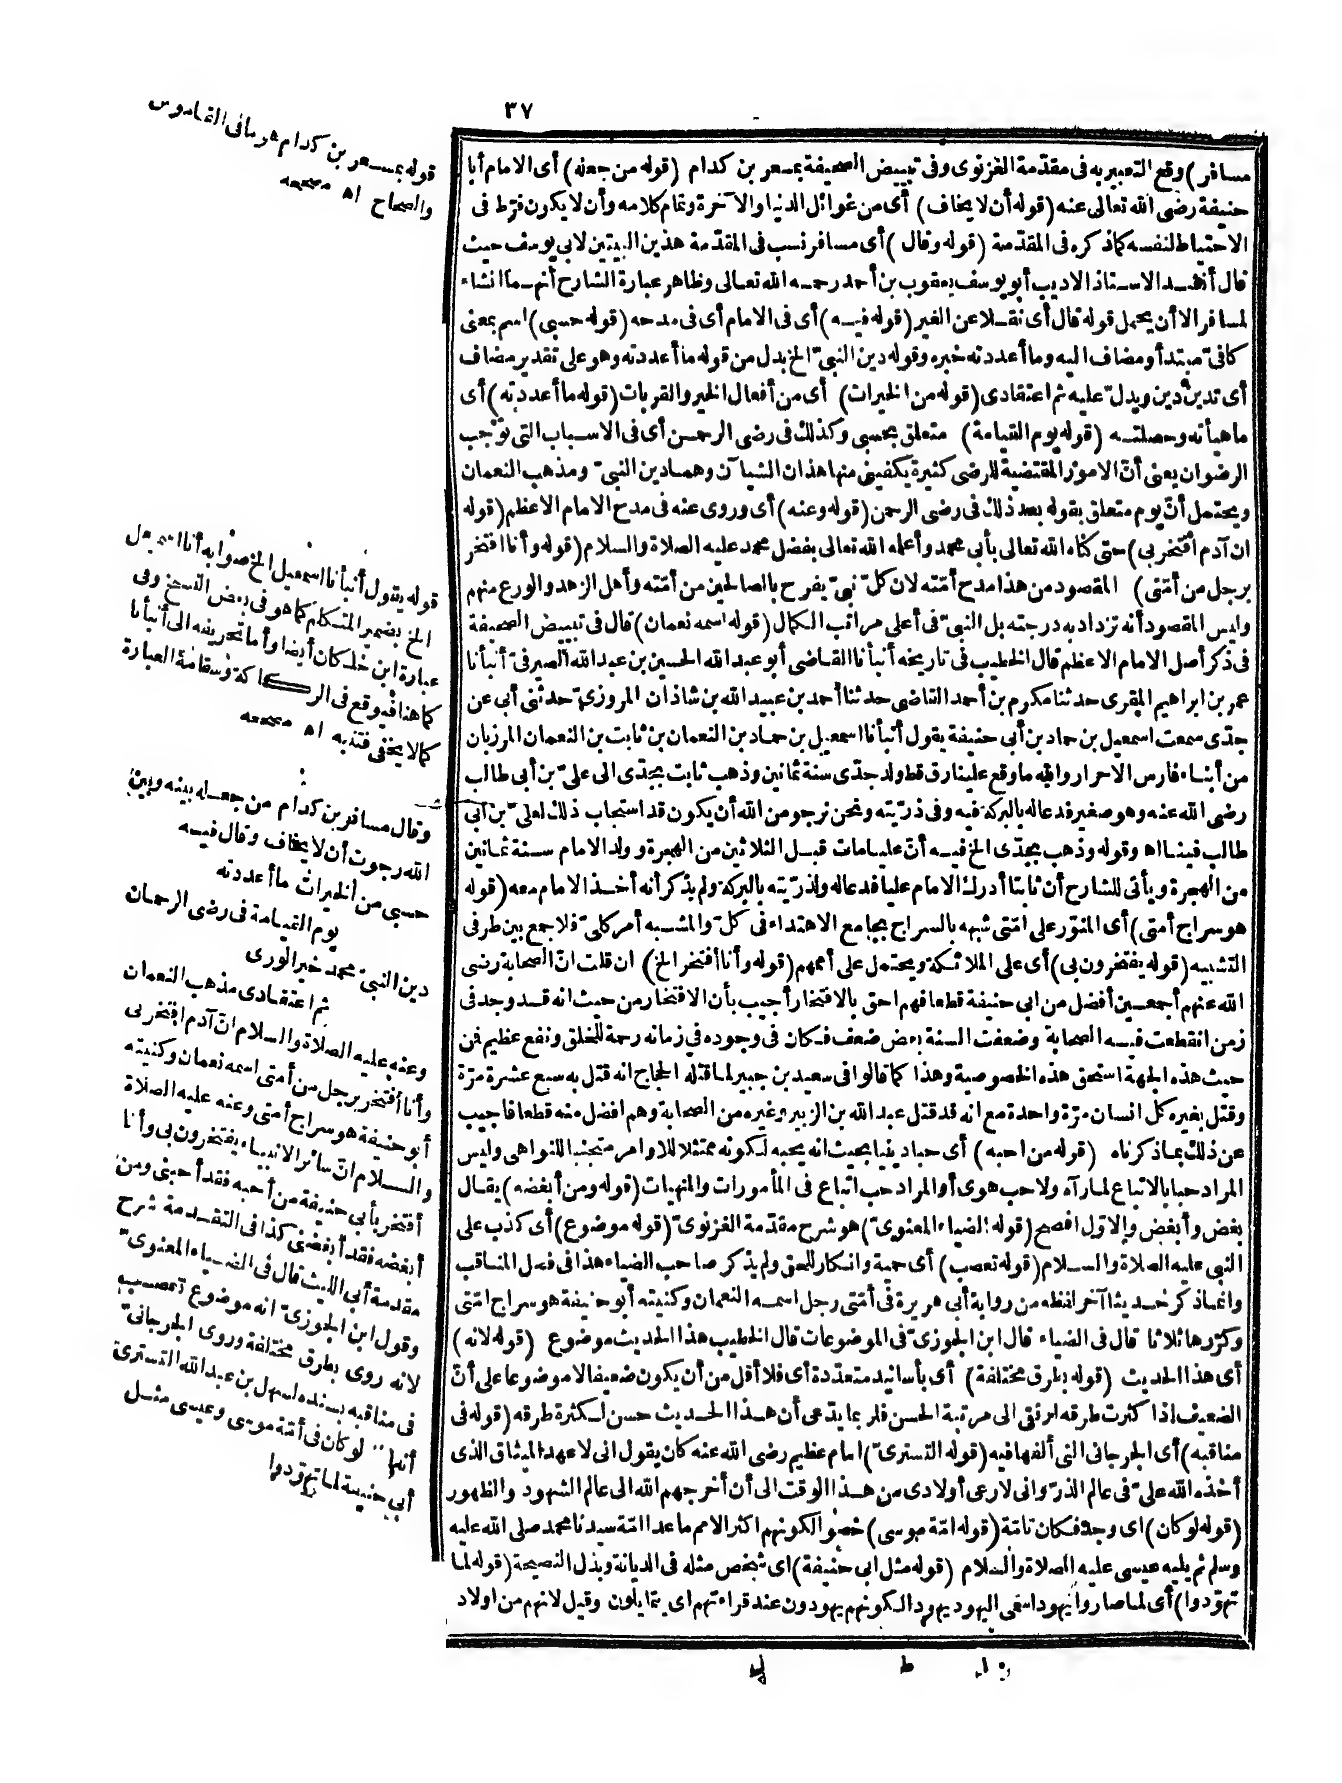 ٣٧
مسافر) وقع التعبير به فى مقدّمة الغزنوى وفى تبييض الصحيفة بمسعر بن كدام (قوله من جعله) أى الامام أبا
حنيفة رضى الله تعالى عنه (قوله أن لا يخاف) أى من غوائل الدنيا والآخرة وتمام كلامه وأن لا يكون فرّط فى
الاحتياط لنفسه كما ذكره فى المقدّمة (قوله وقال) أى مسافر نسب فى المقدّمة هذين البيتين لابى يوسف حيث
قال أنشد الاستاذ الاديب أبو يوسف يعقوب بن أحمد رحمه الله تعالى وظاهر عبارة الشارح أنهما انشاء
لمسافر الا أن يحمل قوله قال أى نقلا عن الغير (قوله فيه) أى فى الامام أى فى مدحه (قوله حسبى) اسم بمعنى
كافىّ مبتدأ ومضاف اليه وما أعددته خبره وقوله دين النبىّ الخ بدل من قوله ما أعددته وهو على تقدير مضاف
أى تدين دين ويدلّ عليه ثم اعتقادى (قوله من الخيرات) أى من أفعال الخير والقربات (قوله ما أعددته) أى
ما هيأته وحصلته (قوله يوم القيامة) متعلق بحسبى وكذلك فى رضى الرحمن أى فى الاسباب التى توجب
الرضوان يعنى أنّ الامور المقتضية للرضى كثيرة يكفينى منها هذان الشيآن وهما دين النبىّ ومذهب النعمان
ويحتمل أنّ يوم متعلق بقوله بعد ذلك فى رضى الرحمن (قوله وعنه) أى وروى عنه فى مدح الامام الاعظم (قوله
ان آدم افتخر بى) حتى كناه الله تعالى بأبى محمد وأعلمه الله تعالى بفضل محمد عليه الصلاة والسلام (قوله وأنا افتخر
برجل من أمّتى) المقصود من هذا مدح أمّته لان كلّ نبىّ يفرح بالصالحين من أمّته وأهل الزهد والورع منهم
وليس المقصود أنه تزداد به درجته بل النبىّ فى أعلى مراتب الكمال (قوله اسمه نعمان) قال فى تبييض الصحيفة
فى ذكر أصل الامام الاعظم قال الخطيب فى تاريخه أنبأنا القاضى أبو عبد الله الحسين بن عبد الله الصيرفىّ أنبأنا
عمر بن ابراهيم المقرى حدثنا مكرم بن أحمد القاضى حدثنا أحمد بن عبيد الله بن شاذان المروزىّ حدثنى أبى عن
جدّى سمعت اسمعيل بن حماد بن أبى حنيفة يقول أنبأنا اسمعيل بن حماد بن النعمان بن ثابت بن النعمان المرزبان
من أبناء فارس الاحرار والله ما وقع علينا رق قط ولد جدّى سنة ثمانين وذهب ثابت بجدّى الى علىّ بن أبى طالب
رضى الله عنه وهو صغير فدعا له بالبركة فيه وفى ذرّيته ونحن نرجو من الله أن يكون قد استجاب ذلك لعلىّ بن أبى
طالب فينا اه وقوله وذهب بجدّى الخ فيه أنّ عليا مات قبل الثلاثين من الهجرة وولد الامام سنة ثمانين
من الهجرة ويأتى للشارح أن ثابتا أدرك الامام عليا فدعا له ولذرّيته بالبركة ولم يذكر أنه أخذ الامام معه (قوله
هو سراج أمتى) أى المنوّر على امّتى شبهه بالسراج بجامع الاهتداء فى كلّ والمشبه أمر كلىّ فلا جمع بين طرفى
التشبيه (قوله يفتخرون بى) أى على الملائكة ويحتمل على أممهم (قوله وأنا أفتخر الخ) ان قلت انّ الصحابة رضى
الله عنهم أجمعين أفضل من ابى حنيفة قطعا فهم احق بالافتخار أجيب بأن الافتخار من حيث انه قد وجد فى
زمن انقطعت فيه الصحابة وضعفت السنة بعض ضعف فكان فى وجوده فى زمانه رحمة للخلق ونفع عظيم فمن
حيث هذه الجهة استحق هذه الخصوصية وهذا كما قالوا فى سعيد بن جبير لما قتله الحجاج انه قتل به سبع عشرة مرّة
وقتل بغيره كل انسان مرّة واحدة مع انه قد قتل عبد الله بن الزبير وغيره من الصحابة وهم افضل منه قطعا فاجيب
عن ذلك بما ذكرناه (قوله من احبه) أى حبا دينيا بحيث انه يحبه لكونه ممتثلا للاوامر مجتنبا للنواهى وليس
المراد حبا بالاتباع لمارآه ولا حب هوى أو المراد حب اتباع فى المأمورات والمنهيات (قوله ومن أبغضه) يقال
بغض وأبغض والاوّل افصح (قوله الضياء المعنوىّ) هو شرح مقدّمة الغزنوىّ (قوله موضوع) أى كذب على
النبى عليه الصلاة والسلام (قوله تعصب) أى حمية وانكار للحق ولم يذكر صاحب الضياء هذا فى فصل المناقب
وانما ذكر حديثا آخر لفظه من رواية أبى هريرة فى أمّتى رجل اسمه النعمان وكنيته أبو حنيفة هو سراج امّتى
وكرّرها ثلاثا قال فى الضياء قال ابن الجوزىّ فى الموضوعات قال الخطيب هذا الحديث موضوع (قوله لانه)
أى هذا الحديث (قوله بطرق مختلفة) أى بأسانيد متعدّدة أى فلا أقل من أن يكون ضعيفا لا موضوعا على أنّ
الضعيف اذا كثرت طرقه ارتقى الى مرتبة الحسن فلربما يدّعى أن هذا الحديث حسن لكثرة طرقه (قوله فى
مناقبه) أى الجرجانى التى ألفها فيه (قوله التسترىّ) امام عظيم رضى الله عنه كان يقول انى لا عهد الميثاق الذى
أخذه الله علىّ فى عالم الذرّ وانى لارعى أولادى من هذا الوقت الى أن أخرجهم الله الى عالم الشهود والظهور
(قوله لو كان) اى وجد فكان تامّة (قوله امّة موسى) خصوا لكونهم اكثر الامم ما عدا امّة سيدنا محمد صلى الله عليه
وسلم ثم يليه عيسى عليه الصلاة والسلام (قوله مثل ابى حنيفة) اى شخص مثله فى الديانة وبذل النصيحة (قوله لما
تهوّدوا) أى لما صاروا يهودا سمى اليهود يهود الكونهم يهودون عند قراءتهم اى يتمايلون وقيل لانهم من اولاد
قوله بمسعر بن كدام هو ما فى القاموس
والصحاح اه مصححه
قوله يقول أنبأنا اسمعيل الخ صوابه أنا اسمعيل
الخ بضمير المتكلم كما هو فى بعض النسخ وفى
عبارة ابن خلكان أيضا وأما تحريفه الى أنبأنا
كما هنا فيوقع فى الركاكة وسقامة العبارة
كما لا يخفى فتنبه اه مصححه
وقال مسافر بن كدام من جعله بينه وبين
الله رجوت أن لا يخاف وقال فيه
حسبى من الخيرات ما أعددته
يوم القيامة فى رضى الرحمان
دين النبىّ محمد خير الورى
ثم اعتقادى مذهب النعمان
وعنه عليه الصلاة والسلام انّ آدم افتخر بى
وأنا أفتخر برجل من أمتى اسمه نعمان وكنيته
أبو حنيفة هو سراج أمتى وعنه عليه الصلاة
والسلام انّ سائر الانبياء يفتخرون بى وأنا
أفتخر بأبى حنيفة من أحبه فقد أحبنى ومن
أبغضه فقد أبغضنى كذا فى التقدمة شرح
مقدمة أبى الليث قال فى الضياء المعنوىّ
وقول ابن الجوزىّ انه موضوع تعصب
لانه روى بطرق مختلفة وروى الجرجانىّ
فى مناقبه بسنده لسهل بن عبد الله التسترىّ
أنه قال لو كان فى أمّة موسى وعيسى مثل
أبى حنيفة لما تهوّدوا